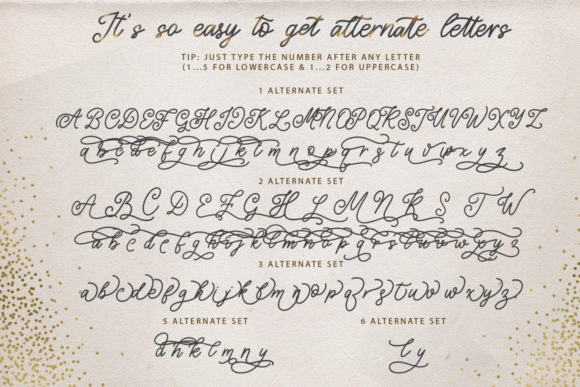 It's so easy to get alternate letters
TIP: JUST TYPE THE NUMBER AFTER ANY LETTER
(1...5 FOR LOWERCASE & 1...2 FOR UPPERCASE)
1 ALTERNATE SET
A B C D E F G H I J K L M N O P Q R S T U V W X Y Z
a b c d e f g h i j k l m n o p q r s t u v w x y z
2 ALTERNATE SET
A B C D E F G H K L M N R S T W
a b c d e f g h i j k l m n o p q r s t u v w x y z
3 ALTERNATE SET
a b c d e f g h i j k l m n o p q r s t u v w x y z
5 ALTERNATE SET 6 ALTERNATE SET
d h k l m n y l y